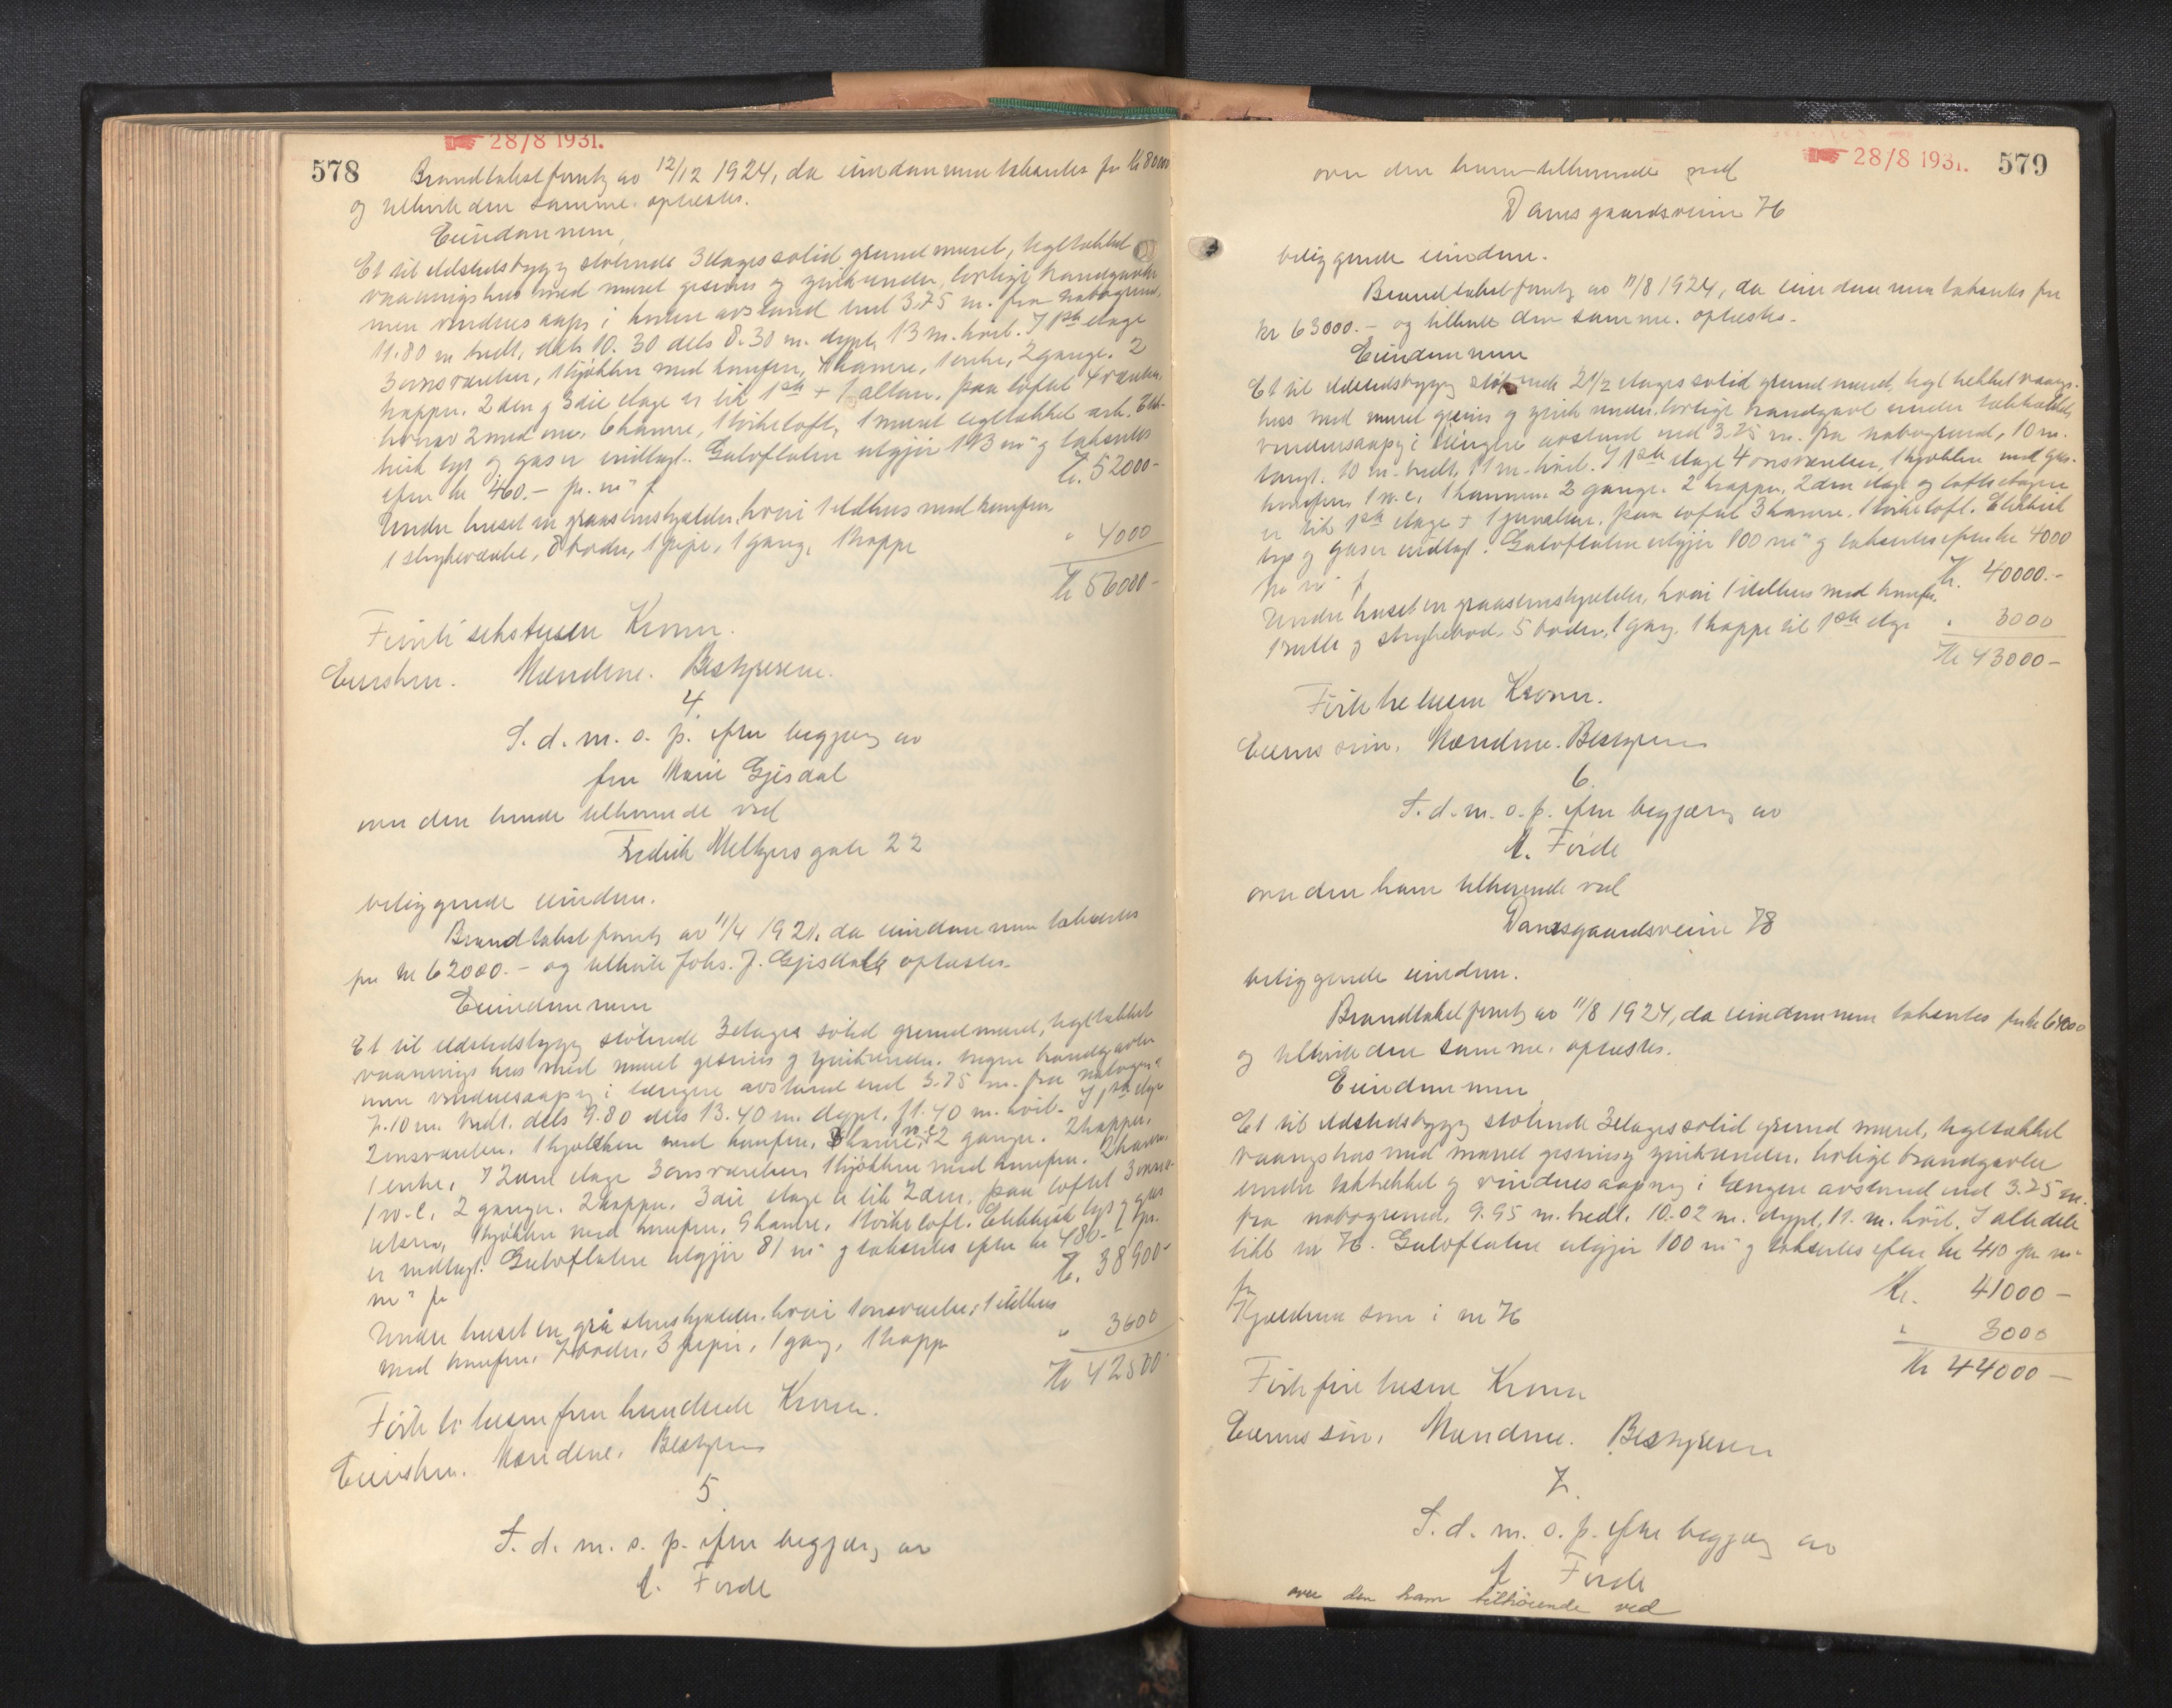 28/8 1931.
578
Brandtakstforretn av 12/12 1924, da eiendommen taksertes for kr 80000
og tilhørte den samme. oplæstes.
Eiendommen
Et til ildstedsbygg støtende 3 etages solid grundmuret, tegltækket
vaaningshus med muret gesims og zink under, lovlige brandgavle
men vinduesaapn i kortere avstand end 3.75 m. fra nabogrund,
11.80 m bredt, dels 10.30 dels 8.30 m. dypt, 13 m. høit. I 1ste etage
3 ovnsværelser, 1 kjøkken med komfyr, 4 kamre, 1 entre, 2 gange. 2
trapper. 2den og 3die etage er lik 1ste + 1 altan. Paa loftet 4 værelser
hvorav 2 med ovn, 6 kamre, 1 tørkeloft, 1 muret tegltækket ark. Elek-
trisk lys og gas er indlagt. Gulvflaten utgjør 113 m² og taksertes
efter kr 460.- pr. m² f
Kr. 52000-
Under huset en graastenskjælder, hvori 1 ildhus med komfyr,
1 strykeværelse, 8 boder, 1 pipe, 1 gang, 1 trappe
" 4000
Kr 56000-
Femti seks tusen Kroner.
Eiersken. Mændene. Bestyreren.
4.
S. d. m. o. p. efter begjæring av
fru Marie Gjesdal
over den hende tilhørende ved
Fredrik Meltzers gate 22
beliggende eiendom.
Brandtakstforretn av 11/4 1921, da eiendommen taksertes
for kr 62000.- og tilhørte Johs. J. Gjesdal oplæstes.
Eiendommen
Et til ildstedsbygg støtende 3 etages solid grundmuret, tegltækket
vaanings hus med muret gesims og zink under. ingen brandgavler
men vinduesaapn i længere avstand end 3.75 m. fra nabogr.
7.10 m. bredt. dels 9.80 dels 13.40 m. dypt. 11.40 m. høit. I 1ste etage
2 ovnsværelser, 1 kjøkken med komfyr, 3 kamre, 1 w.c. 2 gange. 2 trapper.
1 entre. I 2den etage 3 ovnsværelser 1 kjøkken med komfyr. 2 kamre
1 w.c. 2 ganger. 2 trapper. 3die etage er lik 2den. Paa loftet 3 ovnsv-
ærelser, 1 kjøkken med komfyr, 9 kamre. 1 tørkeloft. Elektrisk lys og gas
er indlagt. Gulvflaten utgjør 81 m² og taksertes efter kr 480- pr.
m² f
Kr. 38900-
Under huset en grå stenskjælder, hvori 1 ovnsværelse, 1 ildhus
med komfyr, 7 boder, 3 piper, 1 gang, 1 trapp
" 3600
Kr 42500-
Førti to tusen fem hundrede Kroner.
Eiersken. Mændene. Bestyreren
5
S. d. m. o. p. efter begjæring av
A. Førde
28/8 1931.
579
over den ham tilhørende ved
Damsgaardsveien 76
beliggende eiendom.
Brandtakstforretn av 11/8 1924, da eiendommen taksertes for
kr 63000.- og tilhørte den samme. oplæstes.
Eiendommen
Et til ildstedsbygg støtende 2 1/2 etages solid grundmuret, tegl tekket vaanings-
hus med muret gesims og zink under, lovlige brandgavl under taktekket
vinduesaapn i længere avstand end 3.75 m. fra nabogrund, 10 m.
langt. 10 m. bredt, 11 m. høit. I 1ste etage 4 ovnsværelser, 1 kjøkken med gas-
komfyr, 1 w.c. 1 kammer. 2 gange. 2 trapper, 2den etage og loftsetagen
er lik 1ste etage + 1 jernaltan. Paa loftet 3 kamre. 1 tørkeloft. Elektrisk
lys og gas er indlagt. Gulvflaten utgjør 100 m² og taksertes efter kr 4000
pr m² f
Kr. 40000.-
Under huset en graastenskjælder, hvori 1 ildhus med komfyr.
1 rulle og strykebod, 5 boder, 1 gang, 1 trappe til 1ste etage
" 3000
Kr 43000-
Førti tre tusen Kroner.
Eierens søn. Mændene. Bestyreren
6.
S. d. m. o. p. efter begjæring av
A. Førde
over den ham tilhørende ved
Damsgaardsveien 78
beliggende eiendom.
Brandtakstforretn av 11/8 1924, da eiendommen taksertes for kr 64000
og tilhørte den samme. oplæstes.
Eiendommen
Et til ildstedsbygg støtende 3 etages solid grund muret, tegltækket
vaaningshus med muret gesims og zink under. lovlige brandgavler
under taktekket og vinduesaapning i længere avstand end 3.75 m.
fra nabogrund. 9.95 m. bredt. 10.02 m. dypt, 11. m. høit. I alle dele
likt nr 76. Gulvflaten utgjør 100 m² og taksertes efter kr 410 pr m²
for
Kr. 41000-
Kjælderen som i nr 76
" 3000
Kr 44000-
Førti fire tusen Kroner
Eierens søn. Mændene. Bestyreren
7.
S. d. m. o. p. efter begjæring av
A. Førde
over den ham tilhörende ved